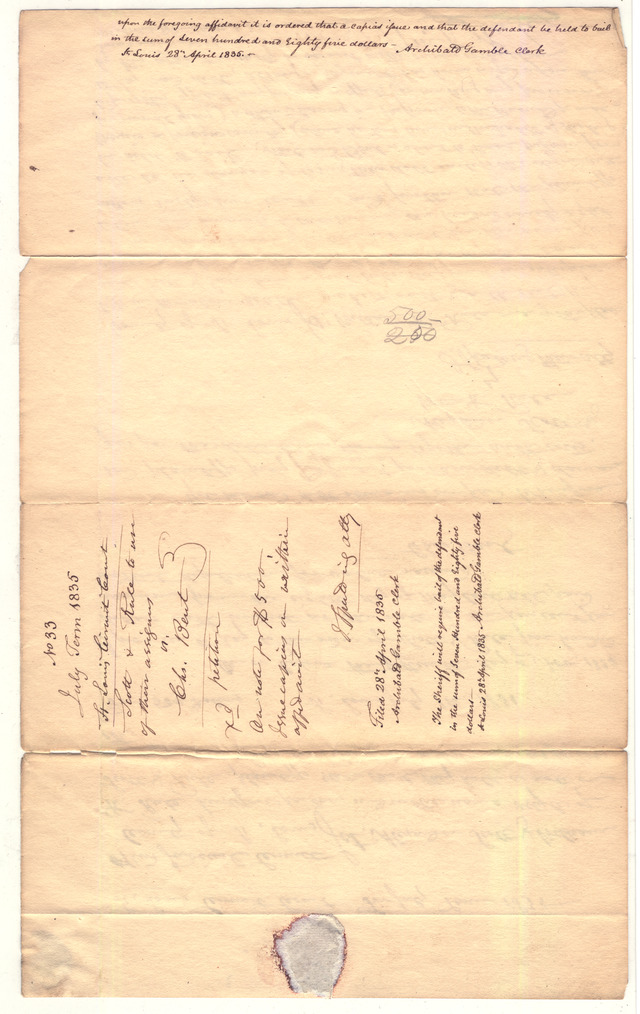 upon the foregoing affidavit it is ordered that a capias issue and that the defendant be held to bail
in the sum of seven hundred and Eighty five dollars - Archibald Gamble Clerk
St Louis 28th April 1835 -
500
250
No 33
July Term 1835
St. Louis Circuit Court
Scott & Rule to use
of their assigns
vs.
Chs. Bent
petition
On note for $500
issue capias on within
affidavit
Spalding atty
Filed 28th April 1835
Archibald Gamble Clerk
The Sheriff will require bail of the defendant
in the sum of Seven Hundred and Eighty five
dollars
St Louis 28th April 1835 - Archibald Gamble Clerk